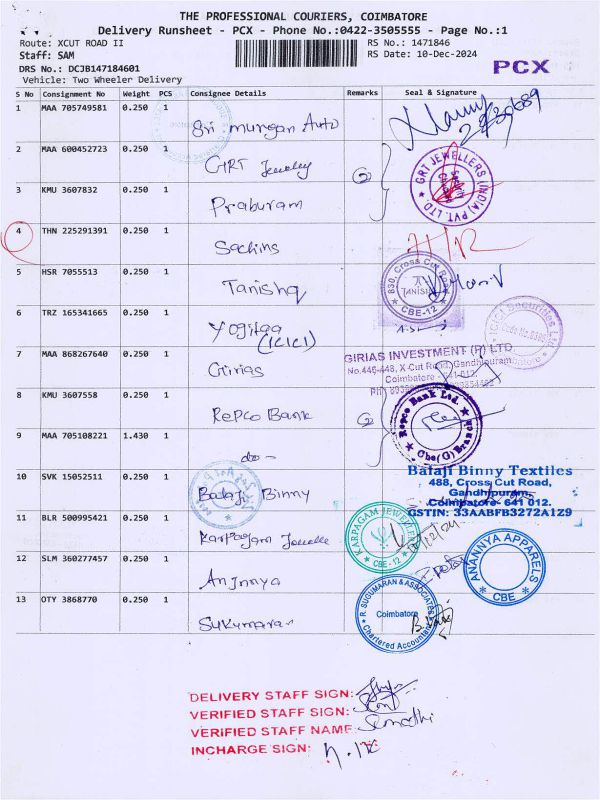 THE PROFESSIONAL COURIERS, COIMBATORE
Delivery Runsheet - PCX - Phone No.:0422-3505555 - Page No.:1
Route: XCUT ROAD II
RS No.: 1471846
Staff: SAM
RS Date: 10-Dec-2024
DRS No.: DCJB147184601
PCX
Vehicle: Two Wheeler Delivery
S No Consignment No Weight PCS Consignee Details Remarks Seal & Signature
1 MAA 705749581 0.250 1 Sri murugan Auto
2 MAA 600452723 0.250 1 GRT Jewelry
GRT JEWELLERS (INDIA) PVT. LTD.
3 KMU 3607832 0.250 1 Praburam
4 THN 225291391 0.250 1 Sachins
5 HSR 7055513 0.250 1 Tanishq
830, Cross Cut Road
TANISHQ
CBE-12
6 TRZ 165341665 0.250 1 Yogitaa
(ICICI)
ICICI Securities Ltd
7 MAA 868267640 0.250 1 Girias
GIRIAS INVESTMENT (P) LTD.
No.446-448, X-Cut Road, Gandhipuram
Coimbatore - 641 012.
8 KMU 3607558 0.250 1 Repco Bank
Repco Bank Ltd.
Cbe(G) Branch
9 MAA 705108221 1.430 1 -do-
Balaji Binny Textiles
488, Cross Cut Road,
Gandhipuram,
Coimbatore- 641 012.
GSTIN: 33AABFB3272A1Z9
10 SVK 15052511 0.250 1 Balaji Binny
11 BLR 500995421 0.250 1 Karpagam Jewelle
KARPAGAM JEWELLERS
CBE-12
10/12/24
12 SLM 360277457 0.250 1 Anjnnya
ANANNYA APPARELS
CBE
13 OTY 3868770 0.250 1 Sukumaran
R. SUGUMARAN & ASSOCIATES
Coimbatore
Chartered Accountants
DELIVERY STAFF SIGN:
VERIFIED STAFF SIGN:
VERIFIED STAFF NAME: Sumathi
INCHARGE SIGN: